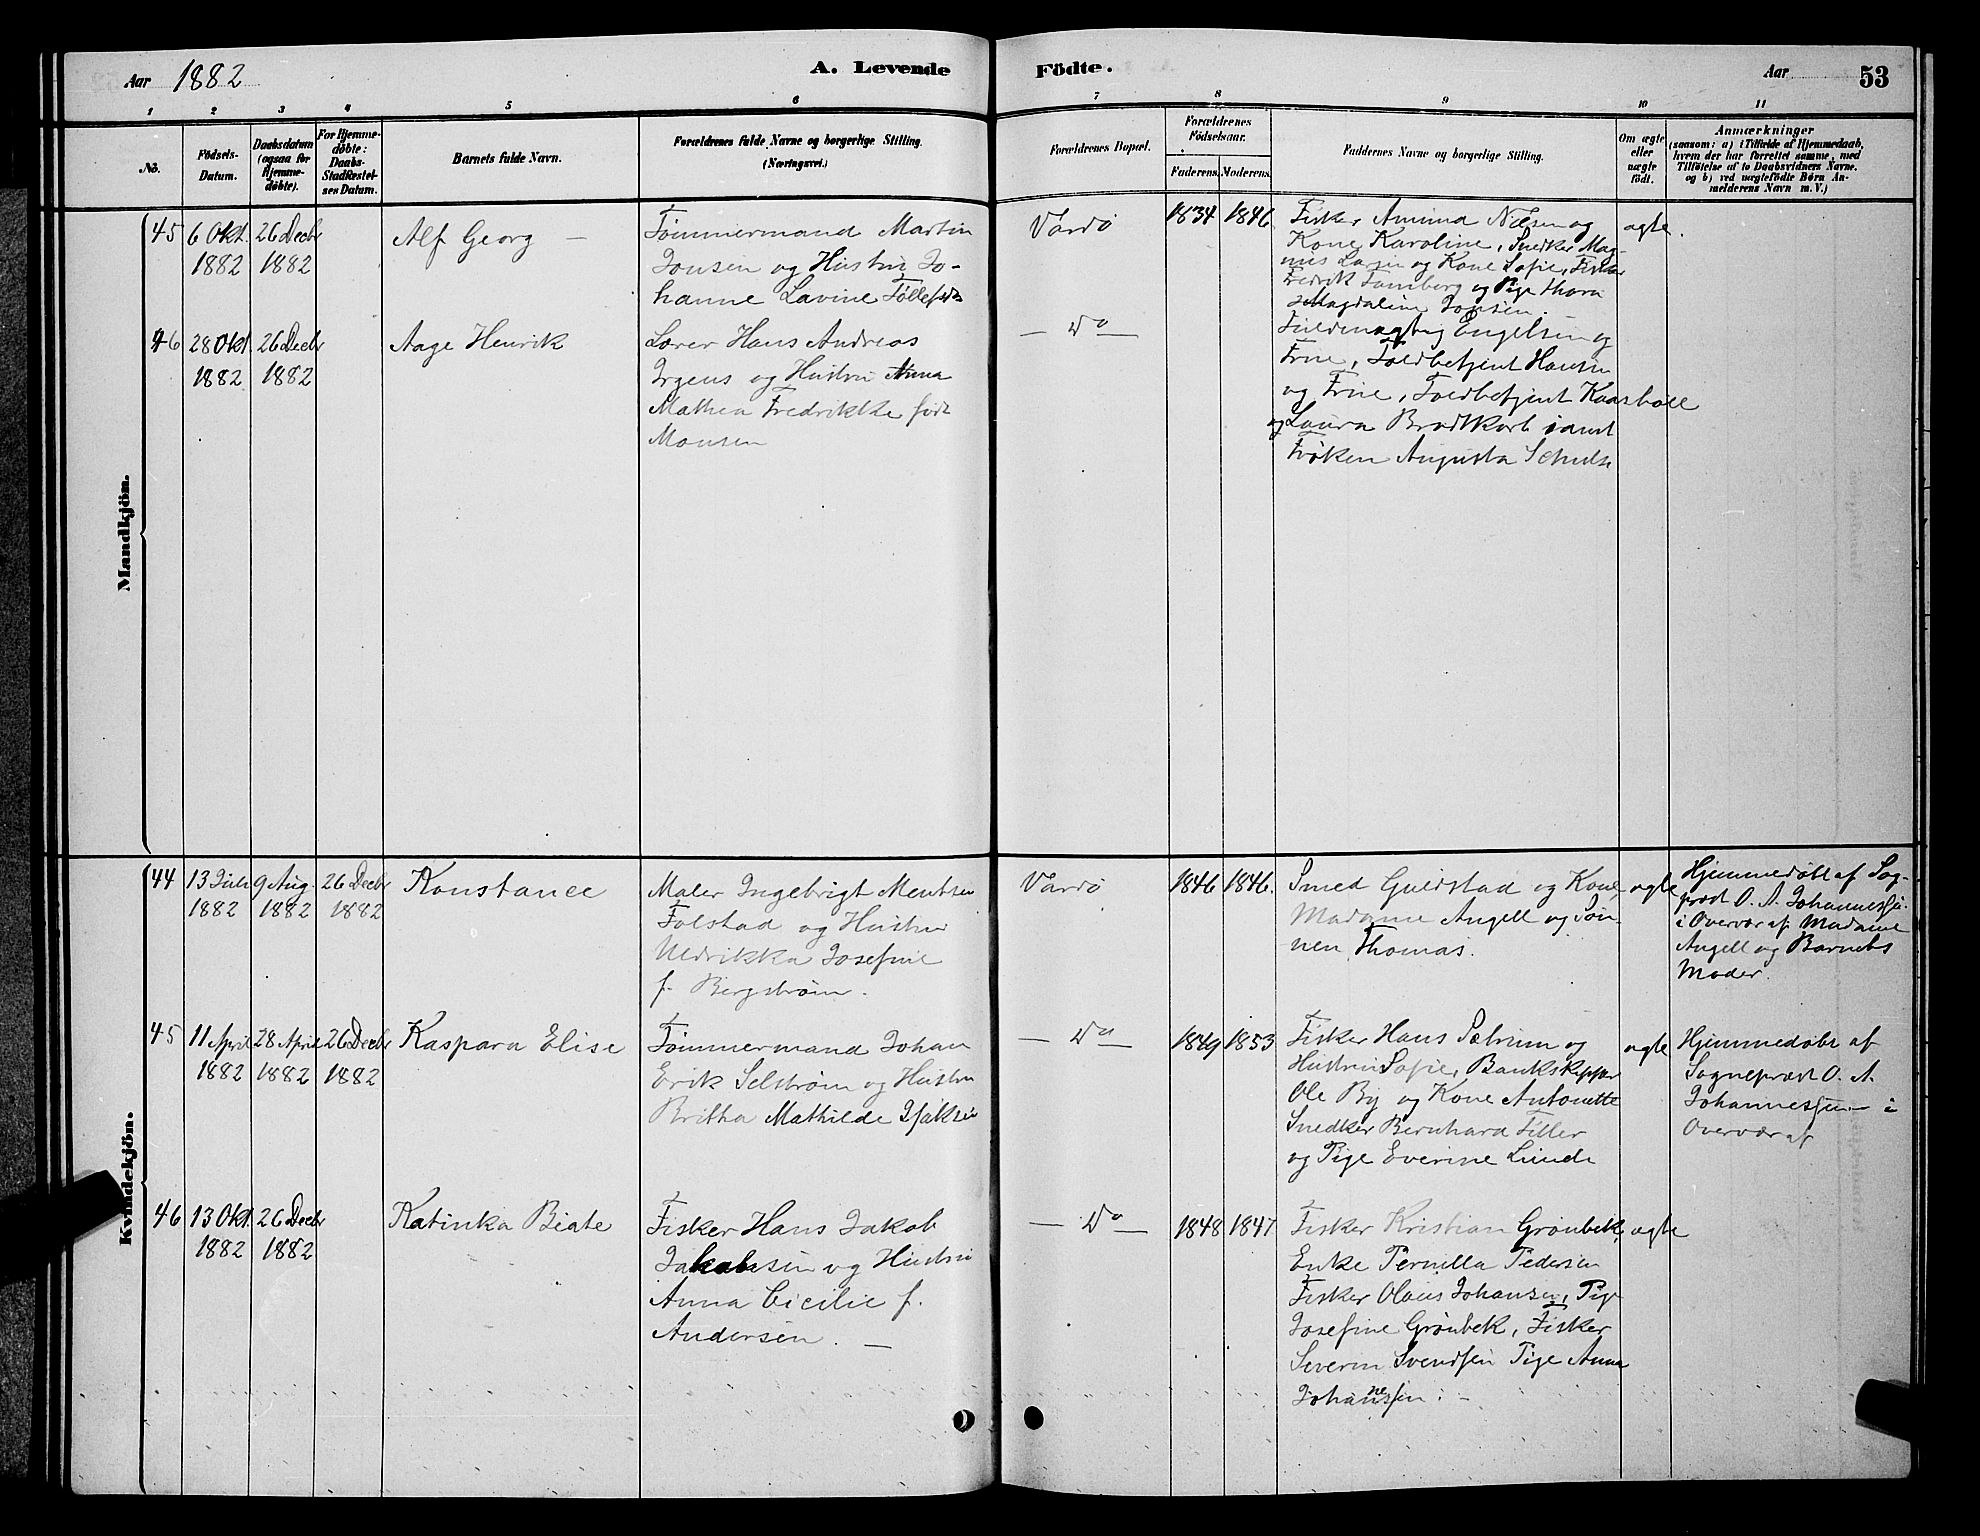 Aar 1882
A. Levende Födte.
Aar
53
1 2 3 4 5 6 7 8 9 10 11
No.
Födsels-Datum.
Daabsdatum (ogsaa for Hjemmedöbte).
For Hjemmedöbte: Daabs-Stadfæstelses Datum.
Barnets fulde Navn.
Forældrenes fulde Navne og borgerlige Stilling. (Næringsvei.)
Forældrenes Bopæl.
Forældrenes Födselsaar.
Faderens. Moderens.
Faddernes Navne og borgerlige Stilling.
Om ægte eller uægte födt.
Anmærkninger
(saasom: a) i Tilfælde af Hjemmedaab,
hvem der har forrettet samme, med
Tilföielse af to Daabsvidners Navne.
og b) ved uægtefödte Børn An-
melderens Navn m. V.)
Mandkjön.
45
6 Okt.
1882
26 Decbr
1882
Alf Georg —
Tømmermand Martin
Jonsen og Hustru Jo-
hanne Lavine
Vardö
1834 1846
Fisker Amund Nilsen og
Kone Karoline, Snedker Mag-
nus Larsen og Kone Sofie, Fisker
Fredrik og Pige Thora
Magdaline Jonsen.
ægte.
46
28 Okt.
1882
26 Decbr
1882
Aage Henrik
Lærer Hans Andreas
Irgens og Hustru Anna
Mathea Fredrikke født
Monsen
— Do —
Fuldmægtig Engelsen og
Frue, Toldbetjent Hansen
og Frue, Toldbetjent Kaarbøll
og Laura Brodtkorb samt
Frøken Augusta Schulse
Kvindekjön.
44
13 Juli
1882
9 Aug.
1882
26 Decbr
1882
Konstance
Maler Ingebrigt Mentsen
Folstad og Hustru
Uldrikka Josefine
f. Bergstrøm.
Vardö
1846 1846.
Smed Guldstad og Kone
Madame Angell og Søn-
nen Thomas.
ægte
Hjemmedøbt af Sog-
præst O. A. Johannessen
i Overvær af Madame
Angell og Barnets
Moder.
45
11 April
1882
28 April
1882
26 Decbr
1882
Kaspara Elise
Tømmermand Johan
Erik Selstrøm og Hustru
Britha Mathilde Isaksen
— Do —
1849 1853
Fisker Hans Sætrum og
Hustru Sofie, Bankskipper
Ole By og Kone Antonette
Snedker Bernhard Tiller
og Pige Everine Lunde
ægte
Hjemmedøbt af
Sognepræst O. A.
Johannessen — i
Overvær af
46
13 Okt.
1882
26 Decbr
1882
Katinka Beate
Fisker Hans Jakob
Jakobsen og Hustru
Anna Cicilie f.
Andersen. —
— Do —
1848 1847
Fisker Kristian Grønbek,
Enke Pernilla Pedersen
Fisker Olaus Johansen, Pige
Josefine Grønbek, Fisker
Severin Svendsen Pige Anna
Johannessen. —
ægte